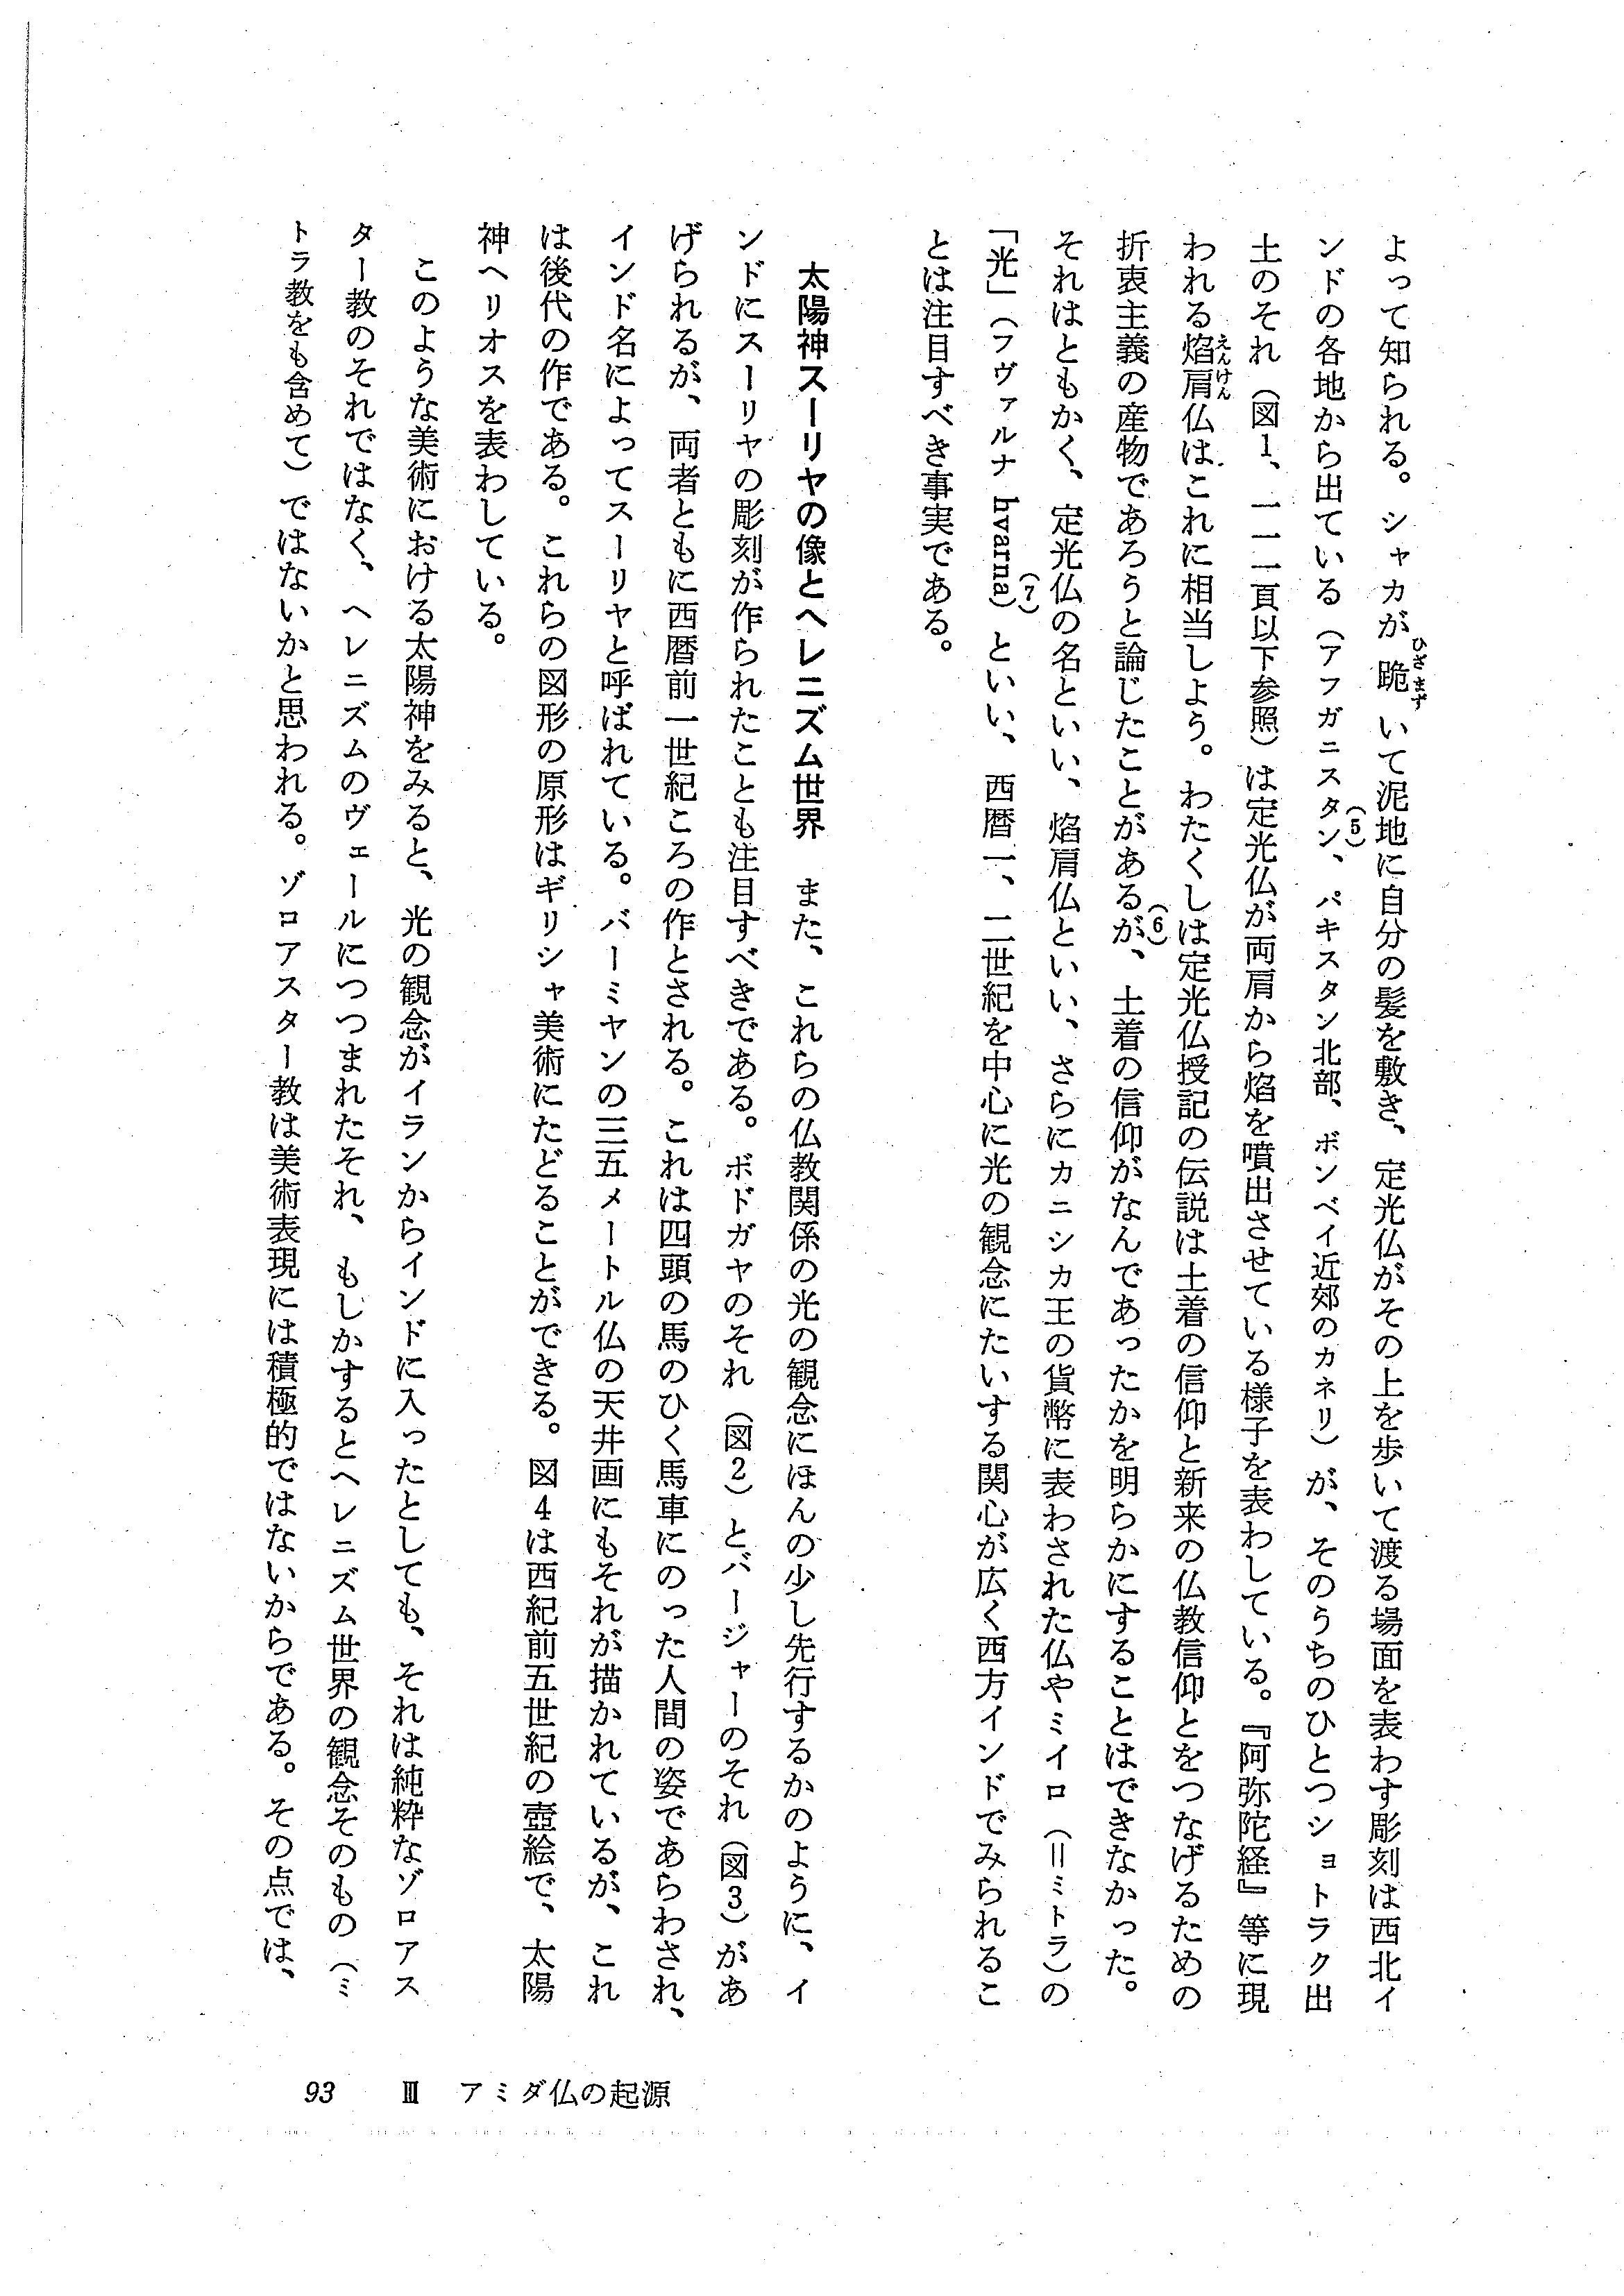 よって知られる。シャカが跪いて泥地に自分の髪を敷き、定光仏がその上を歩いて渡る場面を表わす彫刻は西北イ
ンドの各地から出ている（アフガニスタン、パキスタン北部、ボンベイ近郊のカネリ）が、そのうちのひとつショトラク出
土のそれ（図1、一一一頁以下参照）は定光仏が両肩から焰を噴出させている様子を表わしている。『阿弥陀経』等に現
われる焰肩仏はこれに相当しよう。わたくしは定光仏授記の伝説は土着の信仰と新来の仏教信仰とをつなげるための
折衷主義の産物であろうと論じたことがあるが、土着の信仰がなんであったかを明らかにすることはできなかった。
それはともかく、定光仏の名といい、焰肩仏といい、さらにカニシカ王の貨幣に表わされた仏やミイロ（＝ミトラ）の
「光」（フヴァルナ hvarna）といい、西暦一、二世紀を中心に光の観念にたいする関心が広く西方インドでみられるこ
とは注目すべき事実である。
太陽神スーリヤの像とヘレニズム世界　また、これらの仏教関係の光の観念にほんの少し先行するかのように、イ
ンドにスーリヤの彫刻が作られたことも注目すべきである。ボドガヤのそれ（図2）とバージャーのそれ（図3）があ
げられるが、両者ともに西暦前一世紀ころの作とされる。これは四頭の馬のひく馬車にのった人間の姿であらわされ、
インド名によってスーリヤと呼ばれている。バーミヤンの三五メートル仏の天井画にもそれが描かれているが、これ
は後代の作である。これらの図形の原形はギリシャ美術にたどることができる。図4は西紀前五世紀の壺絵で、太陽
神ヘリオスを表わしている。
このような美術における太陽神をみると、光の観念がイランからインドに入ったとしても、それは純粋なゾロアス
ター教のそれではなく、ヘレニズムのヴェールにつつまれたそれ、もしかするとヘレニズム世界の観念そのもの（ミ
トラ教をも含めて）ではないかと思われる。ゾロアスター教は美術表現には積極的ではないからである。その点では、
ひざまず
(5)
えんけん
(6)
(7)
93　Ⅲ　アミダ仏の起源